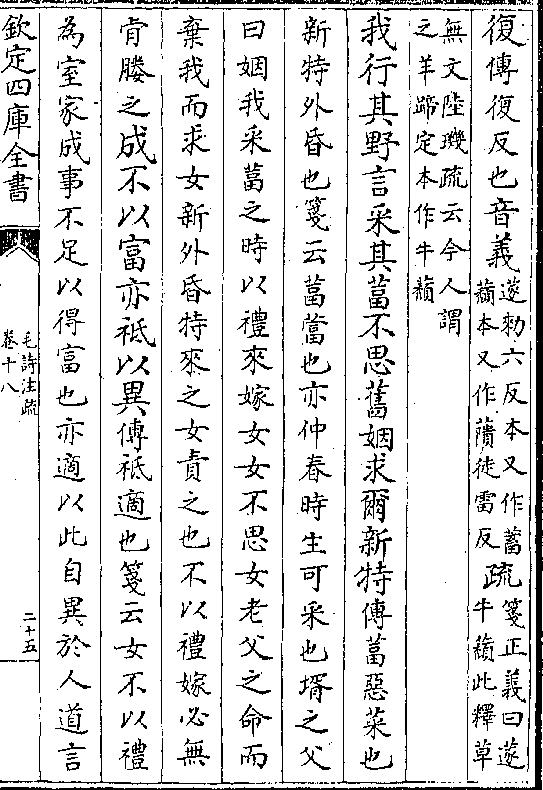 復傳復反也音義蓫勑六反本又作蓄蘈本又作蕢徒雷反疏箋正義曰蓫牛蘈此釋草
無文陸璣疏云今人謂之羊蹄定本作牛蘈
我行其野言采其葍不思舊姻求爾新特傳葍惡菜也
新特外昏也箋云葍䔰也亦仲春時生可采也壻之父
曰姻我采葍之時以禮來嫁女女不思女老父之命而
棄我而求女新外昏特來之女責之也不以禮嫁必無
肯媵之成不以富亦祗以異傳祗適也箋云女不以禮
為室家成事不足以得富也亦適以此自異於人道言
欽定四庫全書
毛詩注疏
卷十八
二十五